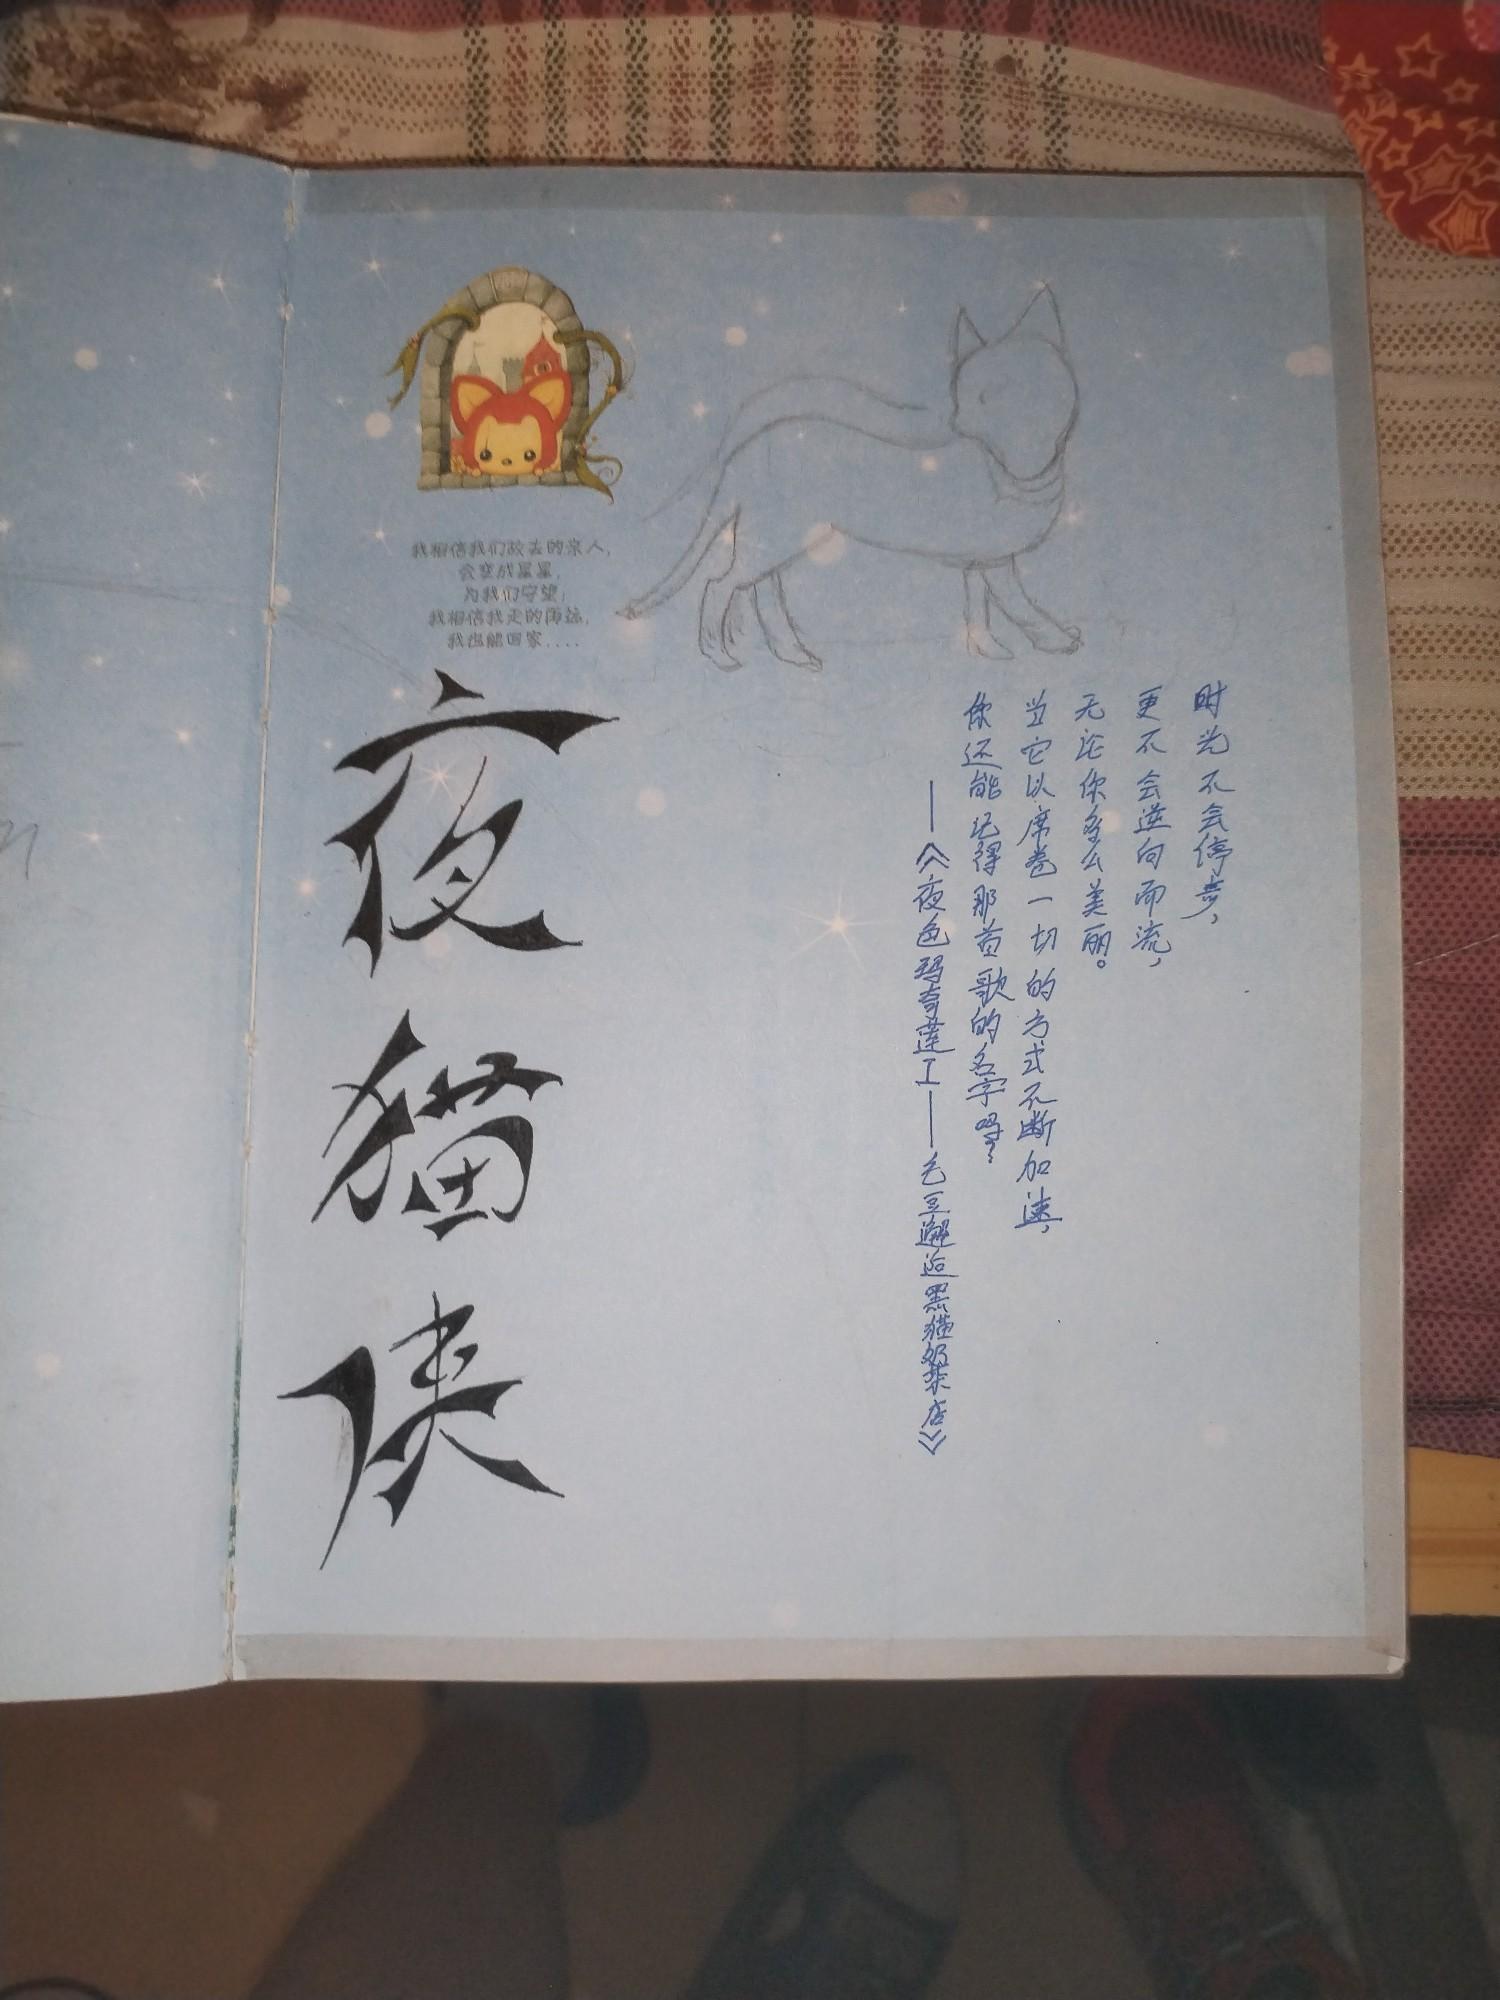 我相信我们故去的亲人,
会变成星星,
为我们守望;
我相信我走的再远,
我也能回家....
夜猫侠
时光不会停步，
更不会逆向而流，
无论你多么美丽。
当它以席卷一切的方式不断加速，
你还能记得那首歌的名字吗？
——《夜色玛奇莲工——毛豆邂逅黑猫奶茶店》